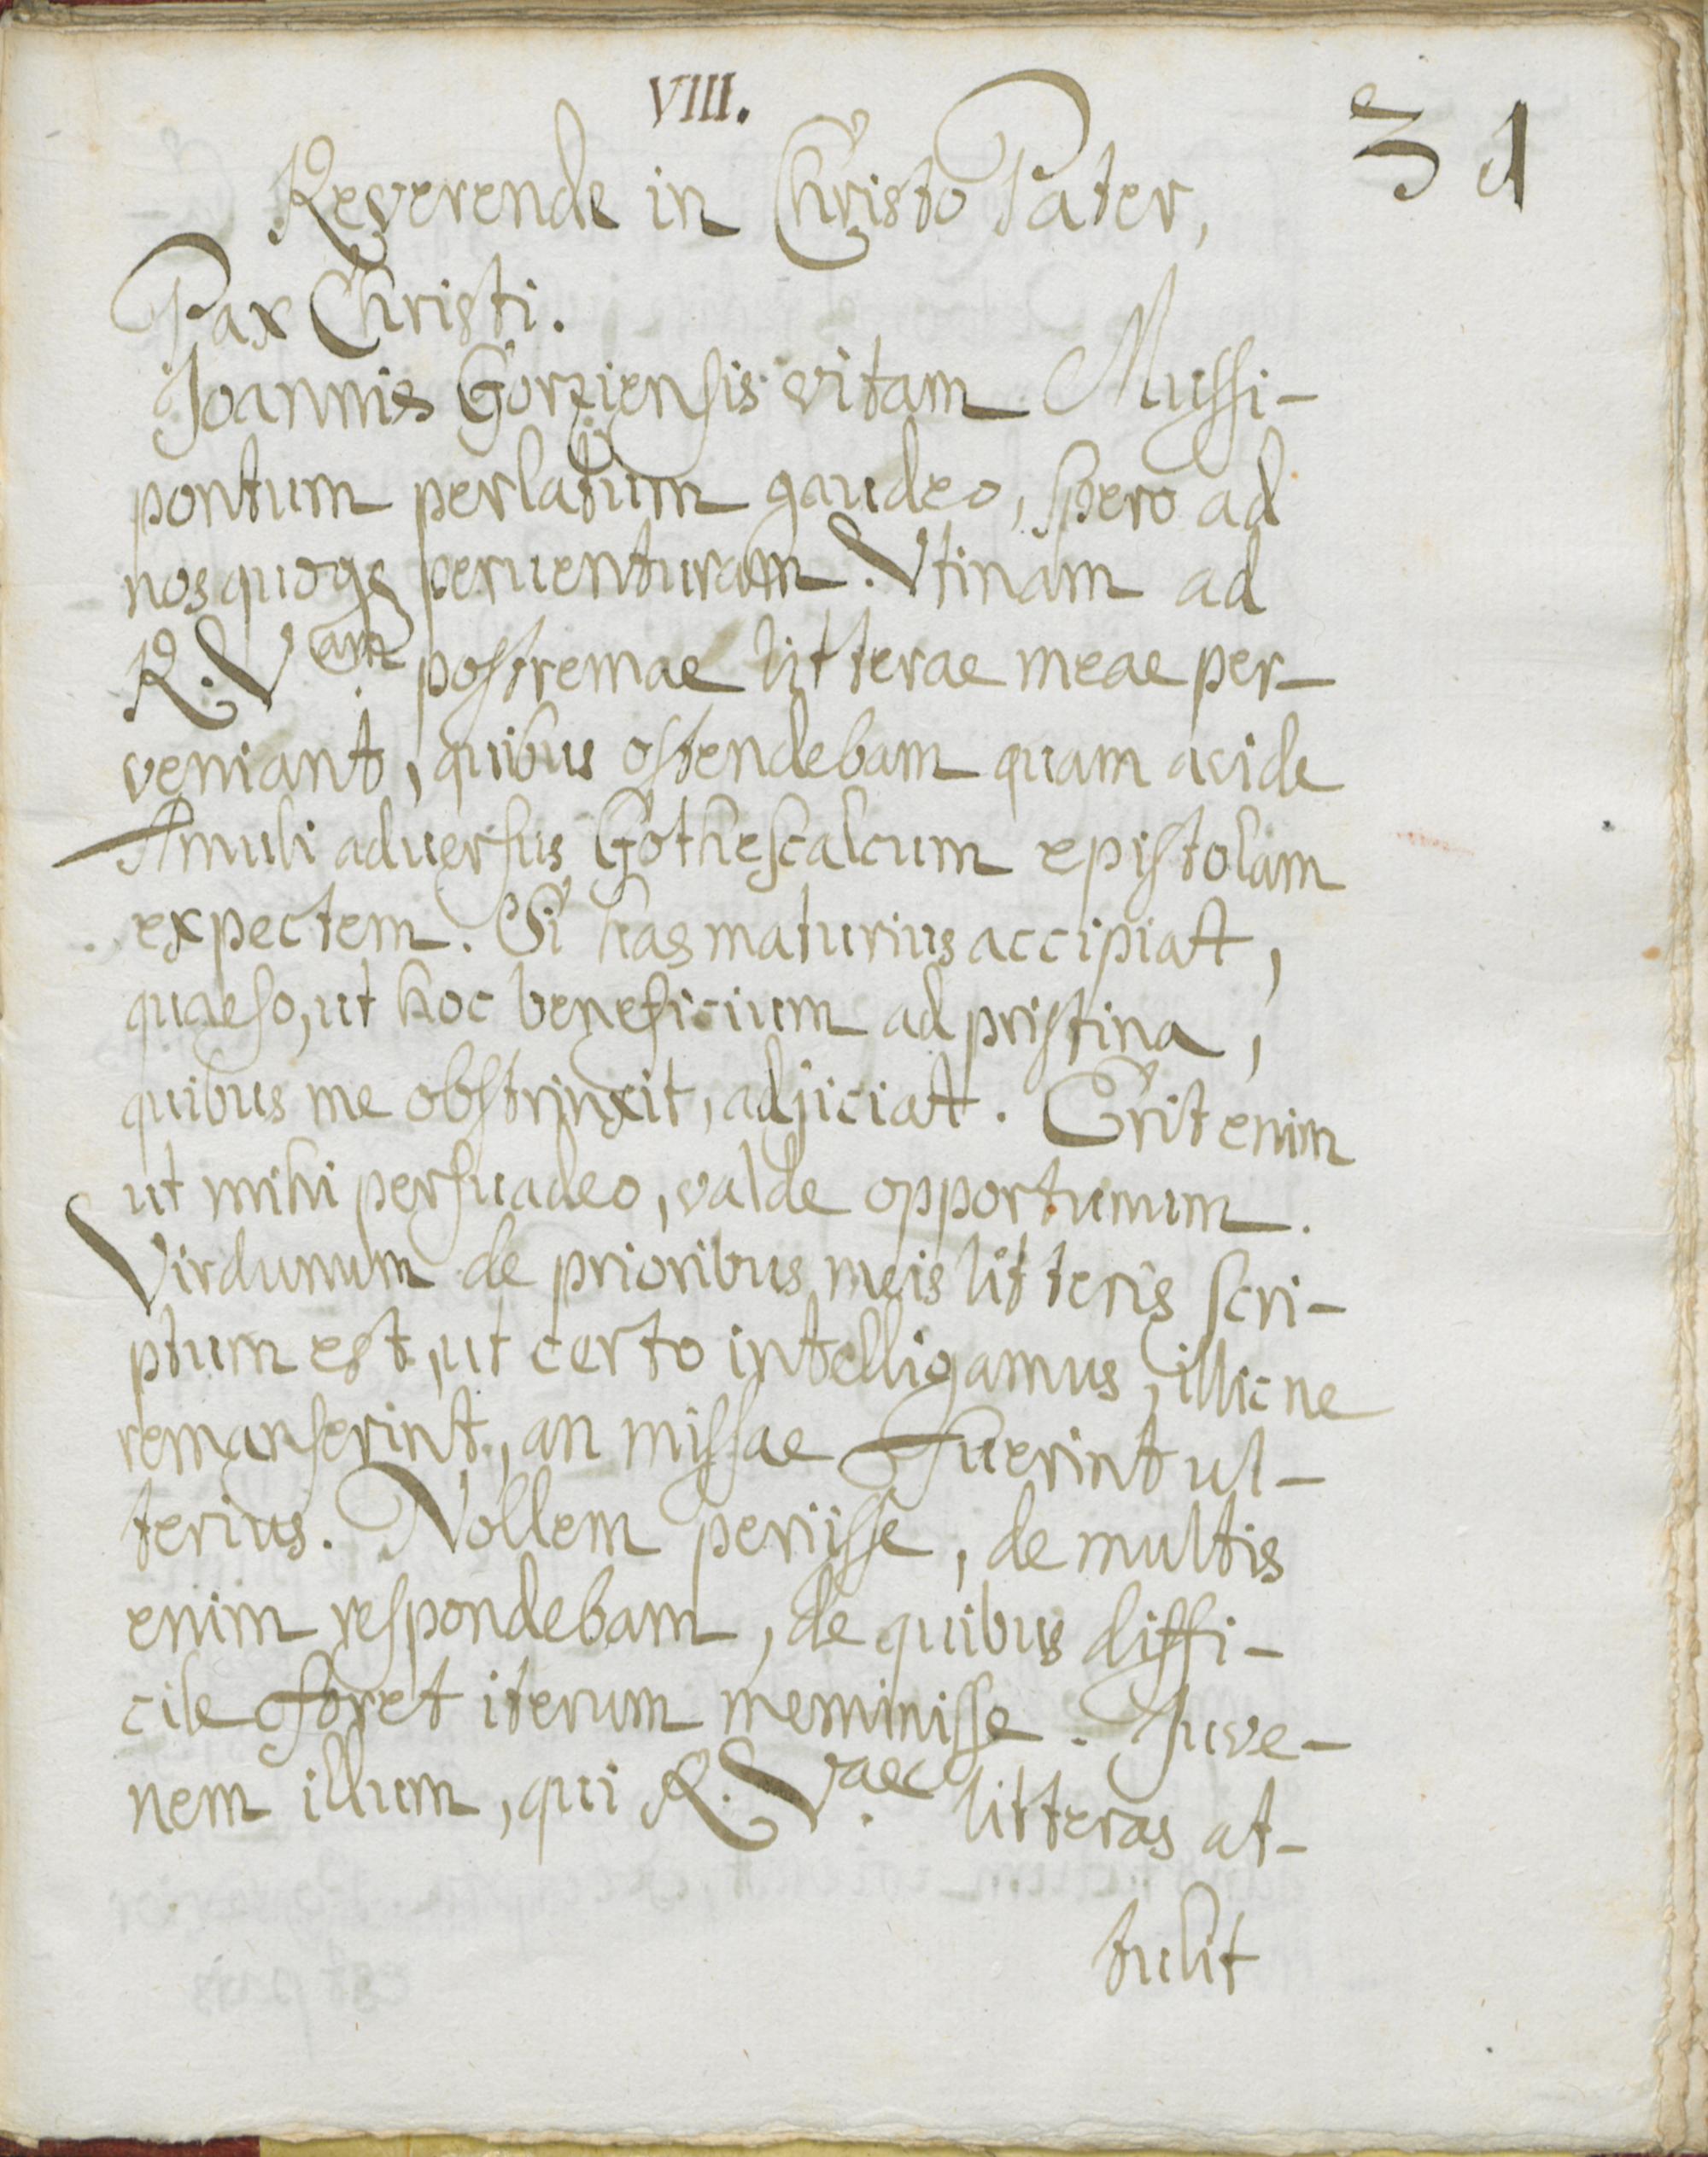 VIII.
31
Reverende in Christo Pater,
Pax Christi.
Joannis Gorziensis vitam Mussi-
pontum perlatum gaudeo, spero ad
nos quoqꝫ peruenturam. Vtinam ad
R. Vam. postremae litterae meae per-
veniant, quibus ostendebam quam avide
Amuli aduersus Gothescalcum epistolam
expectem. Si has maturius accipiat,
quaeso, ut hoc beneficium ad pristina,
quibus me obstrinxit, adjiciat. Erit enim
ut mihi persuadeo, valde opportunum.
Virdunum de prioribus meis litteris scri-
ptum est, ut certo intelligamus, illic ne
remanserint, an missae fuerint ul-
terius. Nollem periisse, de multis
enim respondebam, de quibus diffi-
cile foret iterum meminisse. Juve-
nem illum, qui R. Vae. litteras at-
tulit